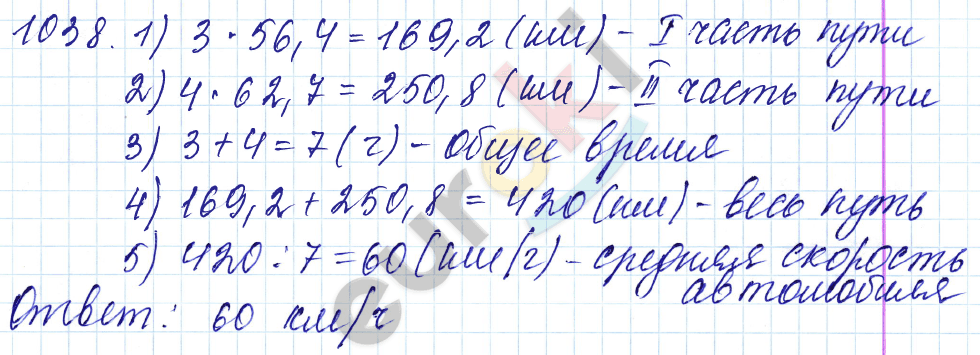 1038. 1) 3 · 56,4 = 169,2 (км) – I часть пути
2) 4 · 62,7 = 250,8 (км) – II часть пути
3) 3 + 4 = 7 (ч) – общее время
4) 169,2 + 250,8 = 420 (км) – весь путь
5) 420 : 7 = 60 (км/ч) – средняя скорость
автомобиля
Ответ: 60 км/ч
euroki